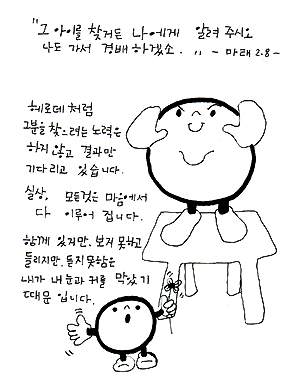 "그 아이를 찾거든 나에게 알려 주시오
나도 가서 경배 하겠소. " ~ 마태 2.8 ~
헤로데 처럼
그분을 찾으려는 노력은
하지 않고 결과만
기다리고 있습니다.
실상, 모든것은 마음에서
다 이루어 집니다.
함께 있지만, 보지 못하고
들리지만, 듣지 못함은
내가 내 눈과 귀를 막았기
때문 입니다.